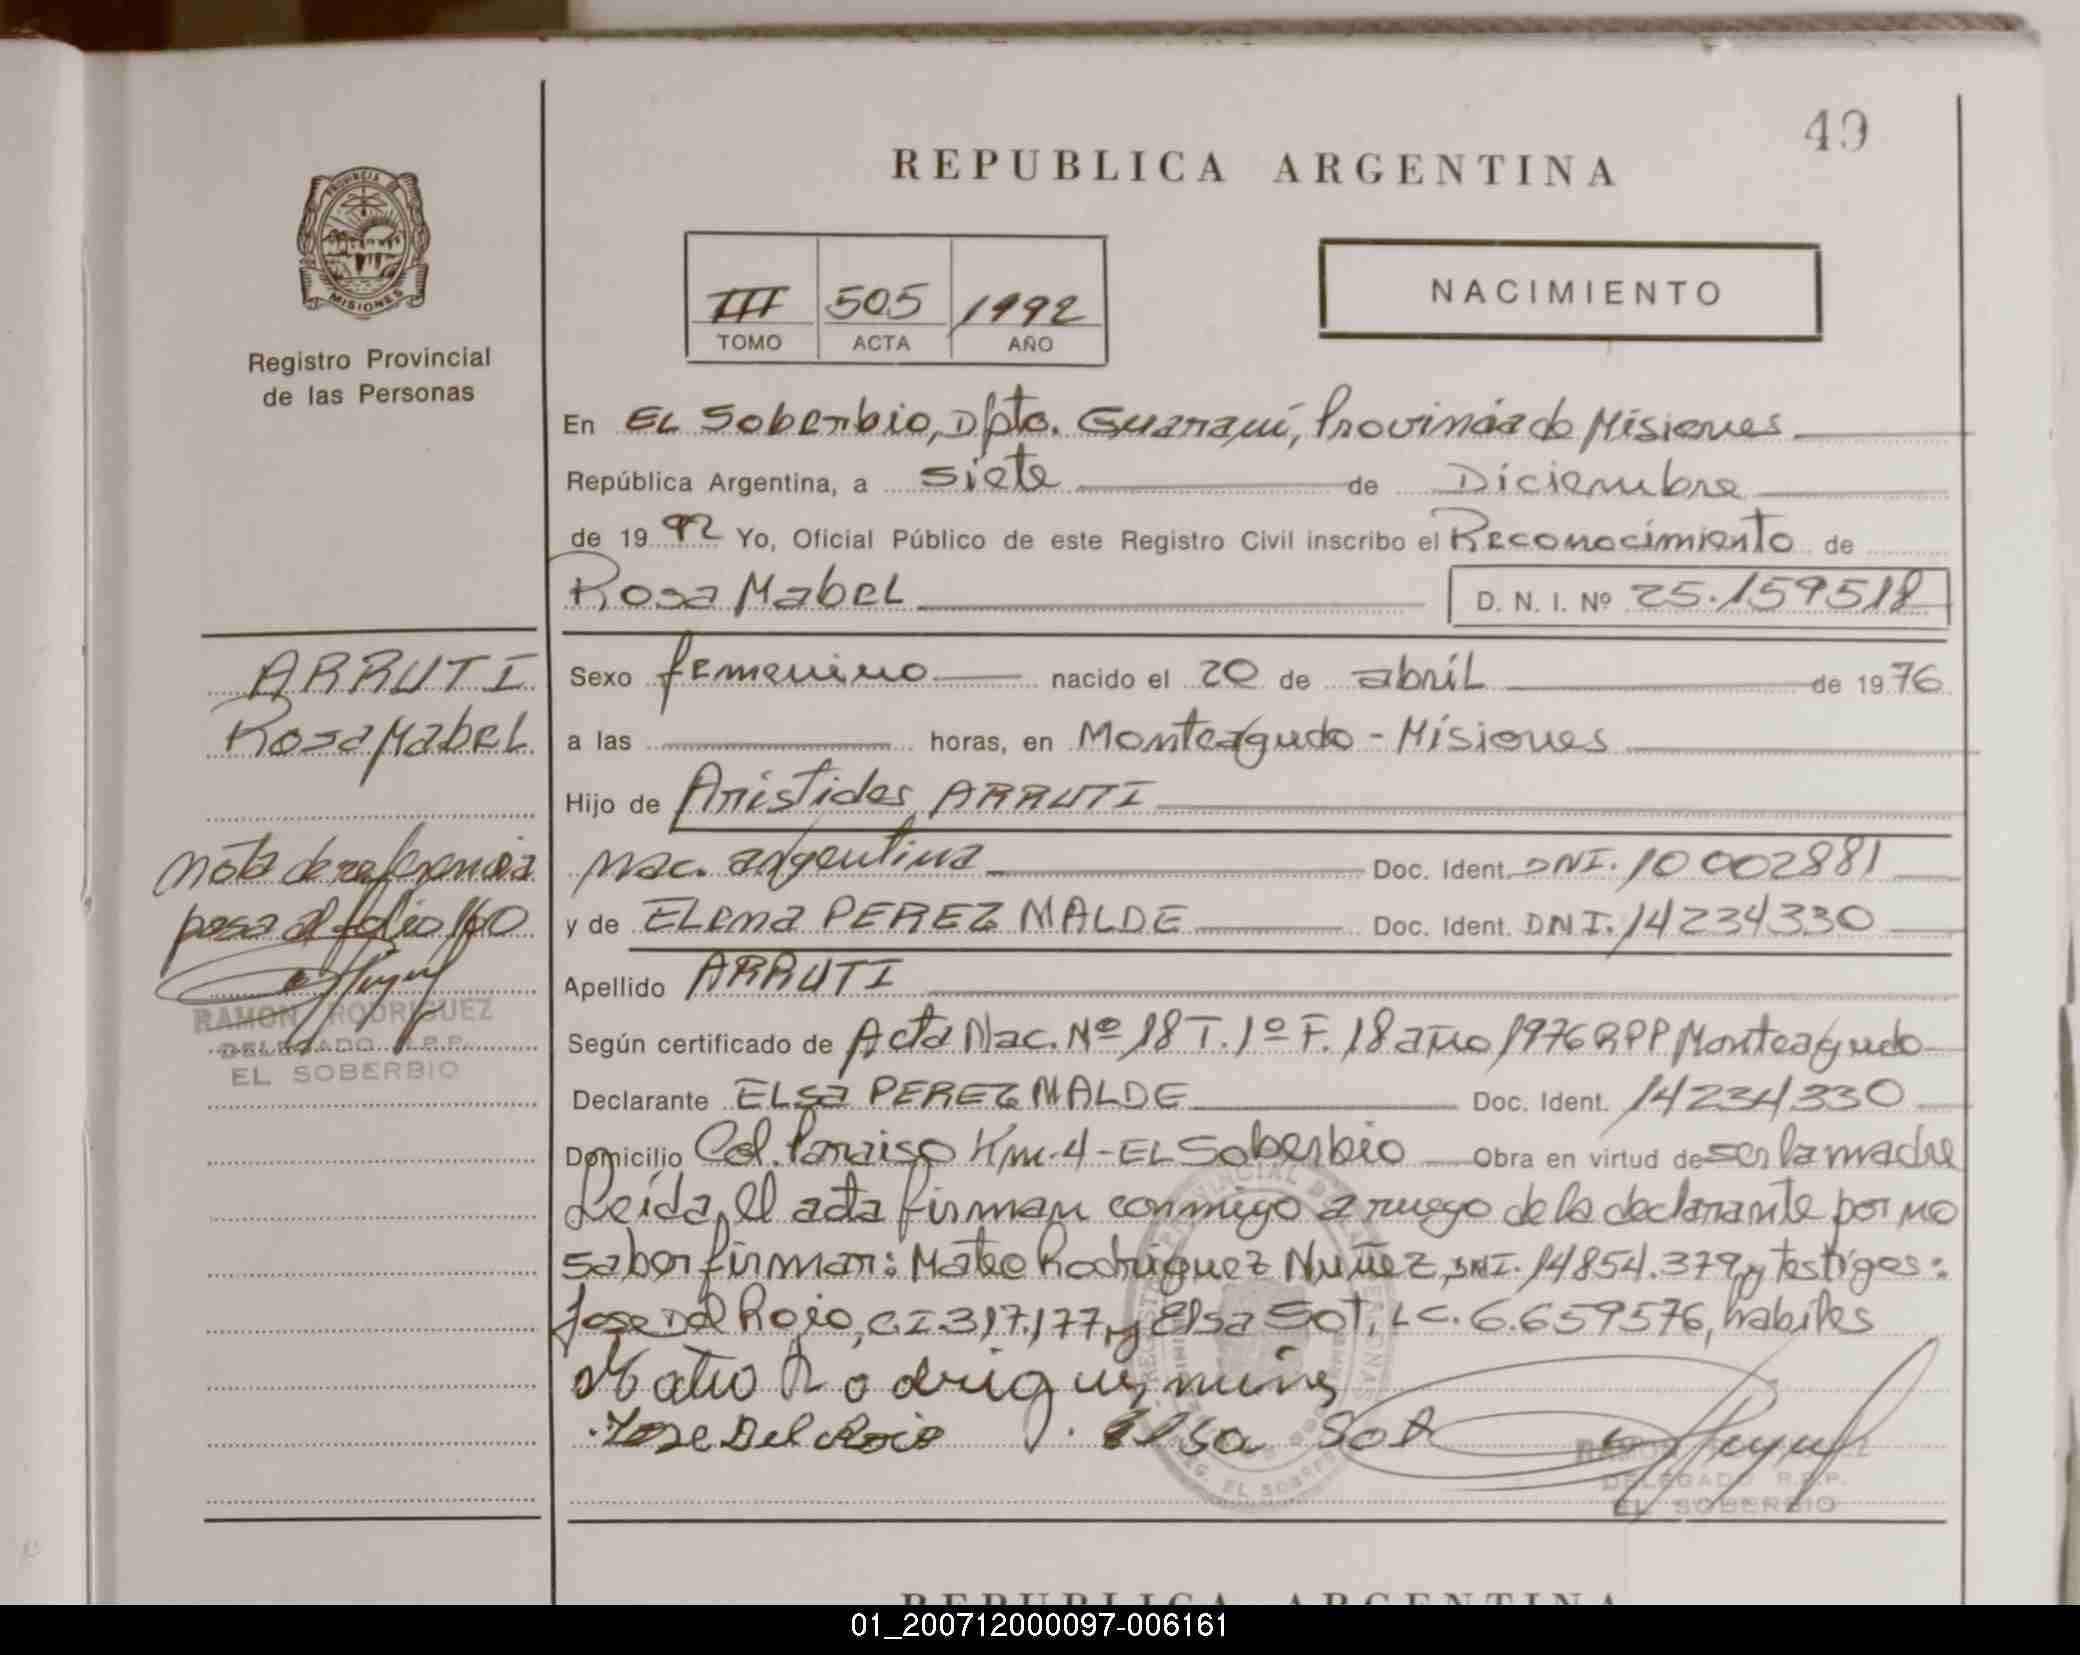 49
REPUBLICA ARGENTINA
PROVINCIA DE
MISIONES
Registro Provincial
de las Personas
III 505 1992
TOMO ACTA AÑO
NACIMIENTO
En EL Soberbio, Dpto. Guaraní, Provincia de Misiones
República Argentina, a siete de Diciembre
de 1992 Yo, Oficial Público de este Registro Civil inscribo el Reconocimiento de
Rosa Mabel D. N. I. Nº 25.159518
ARRUTI
Rosa Mabel
nota de referencia
pasa al folio 160
RAMON RODRIGUEZ
DELEGADO R.P.P.
EL SOBERBIO
Sexo femenino nacido el 20 de abril de 1976
a las horas, en Monteagudo - Misiones
Hijo de Aristides ARRUTI
nac. argentina Doc. Ident. DNI. 10 002881
y de ELena PEREZ MALDE Doc. Ident. DNI. 14234330
Apellido ARRUTI
Según certificado de Acta Nac. Nº 18 T. 1º F. 18 año 1976 RPP Monteagudo
Declarante ELsa PEREZ MALDE Doc. Ident. 14234330
Domicilio Col. Paraiso Km-4 - EL Soberbio Obra en virtud de ser la madre
Leída el acta firman conmigo a ruego de la declarante por no
saber firmar: Mateo Rodriguez Nuñez, DNI. 14854.379 y testigos:
Jose Del Rojo, C.I. 317.177, y Elsa Sot, LC. 6.659576, habiles
Mateo Rodriguez
Jose Del Rojo Elsa Sot
RAMON RODRIGUEZ
DELEGADO R.P.P.
EL SOBERBIO
REPUBLICA ARGENTINA
01_200712000097-006161